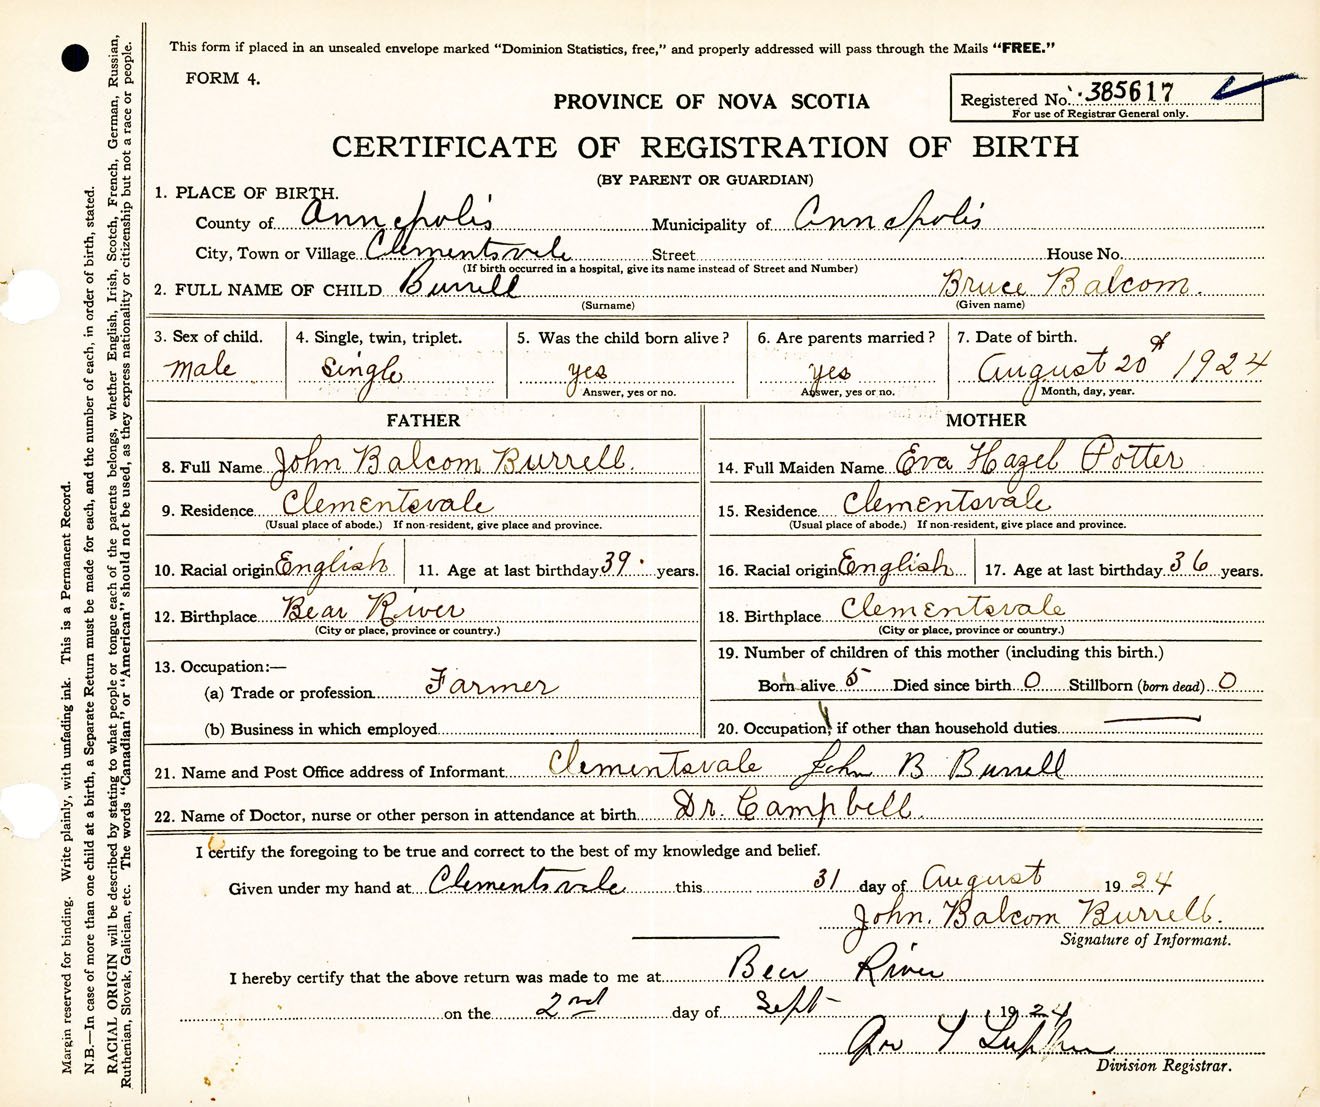 This form if placed in an unsealed envelope marked "Dominion Statistics, free," and properly addressed will pass through the Mails "FREE."
FORM 4.
Registered No. 385617
For use of Registrar General only.
PROVINCE OF NOVA SCOTIA
CERTIFICATE OF REGISTRATION OF BIRTH
(BY PARENT OR GUARDIAN)
1. PLACE OF BIRTH.
County of Annapolis Municipality of Annapolis
City, Town or Village Clementsvale Street House No.
(If birth occurred in a hospital, give its name instead of Street and Number)
2. FULL NAME OF CHILD Burrell Bruce Balcom.
(Surname) (Given name)
3. Sex of child. 4. Single, twin, triplet. 5. Was the child born alive? 6. Are parents married? 7. Date of birth.
male single yes yes August 20 1924
Answer, yes or no. Answer, yes or no. Month, day, year.
FATHER MOTHER
8. Full Name John Balcom Burrell. 14. Full Maiden Name Eva Hazel Potter
9. Residence Clementsvale 15. Residence Clementsvale
(Usual place of abode.) If non-resident, give place and province. (Usual place of abode.) If non-resident, give place and province.
10. Racial origin English 11. Age at last birthday 39 years. 16. Racial origin English 17. Age at last birthday 36 years.
12. Birthplace Bear River 18. Birthplace Clementsvale
(City or place, province or country.) (City or place, province or country.)
13. Occupation:— 19. Number of children of this mother (including this birth.)
(a) Trade or profession Farmer Born alive 5 Died since birth 0 Stillborn (born dead) 0
(b) Business in which employed 20. Occupation, if other than household duties
21. Name and Post Office address of Informant Clementsvale John B Burrell
22. Name of Doctor, nurse or other person in attendance at birth Dr. Campbell.
I certify the foregoing to be true and correct to the best of my knowledge and belief.
Given under my hand at Clementsvale this 31 day of August 1924
John. Balcom Burrell.
Signature of Informant.
I hereby certify that the above return was made to me at Bear River
on the 2nd day of Sept 1924
Division Registrar.
Margin reserved for binding. Write plainly, with unfading ink. This is a Permanent Record.
N.B.—In case of more than one child at a birth, a Separate Return must be made for each, and the number of each, in order of birth, stated.
RACIAL ORIGIN will be described by stating to what people or tongue each of the parents belongs, whether English, Irish, Scotch, French, German, Russian,
Ruthenian, Slovak, Galician, etc. The words "Canadian" or "American" should not be used, as they express nationality or citizenship but not a race or people.